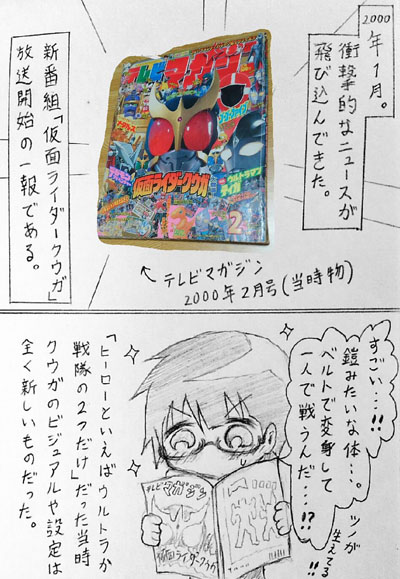 2000年1月。
衝撃的なニュースが
飛び込んできた。
テレビマガジン
仮面ライダークウガ
ウルトラマン
2
新番組「仮面ライダークウガ」
放送開始の一報である。
テレビマガジン
2000年2月号(当時物)
すごい…!!
鎧みたいな体…。
ベルトで変身して
一人で戦うんだ…!?
ツノが
生えてる!!
「ヒーローといえばウルトラか
戦隊の2つだけ」だった当時
クウガのビジュアルや設定は
全く新しいものだった。
テレビマガジン
仮面ライダークウガ